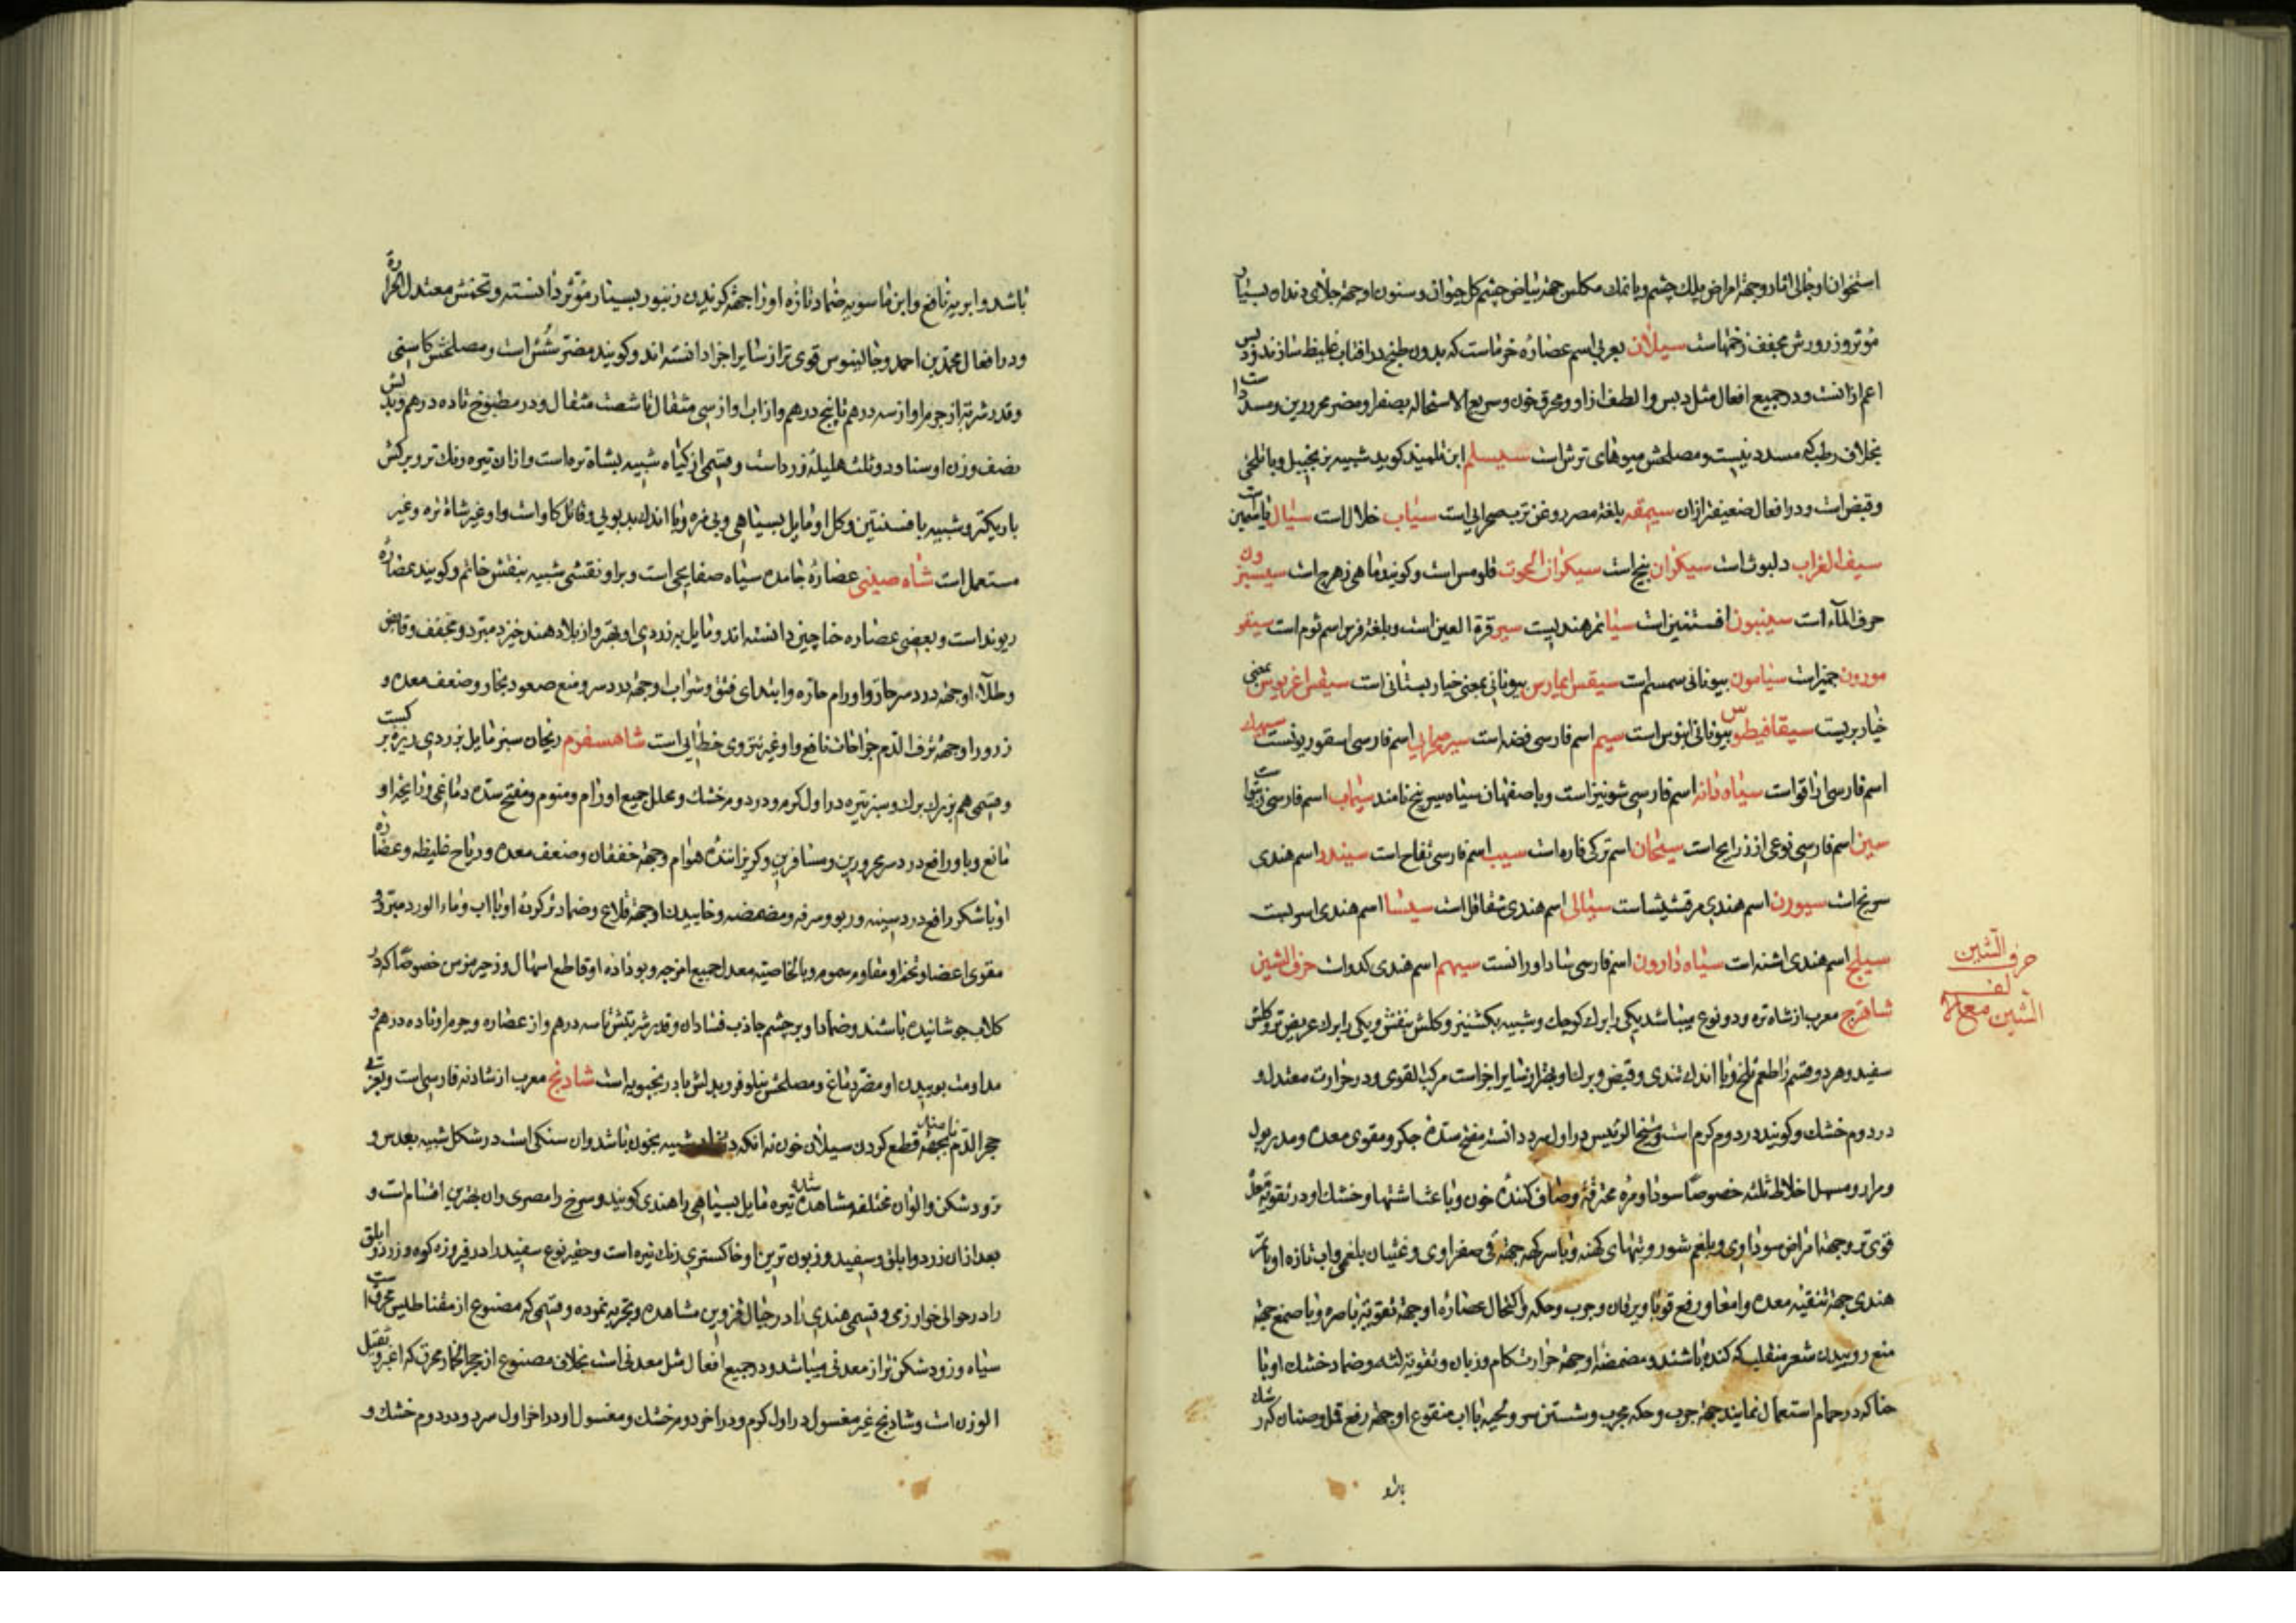 استخوان او جالی اثار و جهة امراض پلک چشم و با نمک مکلس جهة بیاض چشم کل حیوان و سنون او جهة جلای دندان بسیار
مؤثر و ذرورش مجفف زخمهاست سیلان بعربی اسم عصارهٔ خرماست که بدون طبخ در افتاب غلیظ سازند و دبس
اعم از انست و در جمیع افعال مثل دبس و الطف از او و محرق خون و سریع الاستحاله بصفرا و مضر محرورین و مسدد است
بخلاف رطب که مسدد نیست و مصلحش میوهای ترش است سیسلم ابن تلمیذ کوید شبیه بزنجبیل و با تلخی
و قبض است و در افعال ضعیفتر ازان سیمقه بلغة مصر روغن ترب صحرائی است سیاب خلال است سیال یاسمین است
سیف الغراب دلبوث است سیکران بنج است سیکران الحوت قلومس است و کویند ماهی زهرج است سیسبرون
حرف الماء است سینبون افسنتین است سیا تمر هندیست سیر قرة العین است و بلغة فرس اسم ثوم است سیقو
مورون جمیز است سیامون بیونانی سمسم است سیقس ایمارس بیونانی بمعنی خیار بستانی است سیقس اغریوس بمعنی
خیار بریست سیقافیطوس بیونانی ابنوس است سیم اسم فارسی فضه است سیر صحرایی اسم فارسی اسقوردیونست سپیدک
اسم فارسی اناقوا است سیاه دانه اسم فارسی شونیز است و باصفهان سیاه سرنج نامند سیماب اسم فارسی زیبق است
سین اسم فارسی نوعی از ذراریح است سیحان اسم ترکی فاره است سیب اسم فارسی تفاح است سیندر اسم هندی
سرنج است سیورن اسم هندی مرقشیشا است سیالی اسم هندی شقاقل است سیسا اسم هندی اسربست
سیلج اسم هندی اشنه است سیاه دارون اسم فارسی شاداورانست سیهم اسم هندی کدو است حرف الشین
حرف الشین
الشین مع الالف
شاهترج معرب از شاه تره و دو نوع میباشد یکی را برک کوچک و شبیه بکشنیز و کلش بنفش و یکی را برک عریض تر و کلش
سفید و هر دو قسم را طعم تلخ و با اندک تندی و قبض و برک او بهتر از سایر اجزاست مرکب القوی و در حرارت معتدل و
در دوم خشک و کویند در دوم کرم است و شیخ الرئیس در اول سرد دانسته مفتح سدهٔ جکر و مقوی معده و مدر بول
و مرار و مسهل اخلاط ثلثه خصوصا سودا و مره محترقه و صاف کنندهٔ خون و باعث اشتها و خشک او در تقویة معده
قوی تر و جهة امراض سوداوی و بلغم شور و تبهای کهنه و با سرکه جهة قی صفراوی و غثیان بلغمی و اب تازه او با تمر
هندی جهة تنقیه معده و امعا و رفع قوبا و یرقان و جرب و حکه و اکتحال عصارهٔ او جهة تقویة باصره و با صمغ جهة
منع روییدن شعر منقلب که کنده باشند و مضمضهٔ او جهة حرارت کام و زبان و تقویة لثه و ضماد خشک او با
حنا که در حمام استعمال نمایند جهة جرب و حکه مجرب و شستن سر و لحیه با اب منقوع او جهة رفع قمل و صئبان که رشک
باشد و ابریه نافع و ابن ماسویه ضماد تازه او را جهة کزیدن زنبور بسیار مؤثر دانسته و تخمش معتدل الحرارة
و در افعال محمد بن احمد و جالینوس قوی تر از سایر اجزا دانسته اند و کویند مضر شش است و مصلحش کاسنی
و قدر شربتش از جرم او از سه درهم تا پنج درهم و از اب او از سی مثقال تا شصت مثقال و در مطبوخ تا ده درهم و بدلش
نصف وزن او سنا و دو ثلث هلیلهٔ زرد است و قسمی از کیاه شبیه بشاه تره است و ازان تیره رنک تر و برکش
باریکتر و شبیه بافسنتین و کل او مایل بسیاهی و بی مزه و با اندک بدبویی و قاتل کاو است و او غیر شاه تره و غیر
مستعمل است شاه صینی عصارهٔ جامده سیاه صفایحی است و بر او نقشی شبیه بنقش خاتم و کویند عصارهٔ
ریوند است و بعضی عصاره حنا چین دانسته اند و مایل بزردی او بهتر و از بلاد هند خیزد مبرد و مجفف و قابض
و طلاء او جهة درد سر حار و اورام حاره و ابتدای فتق و شراب او جهة درد سر و منع صعود بخار و ضعف معده و
ذرور او جهة نزف الدم جراحات نافع و او غیر تتوی خطایی است شاهسفرم ریحان سبز مایل بزردی ریزه برکست
و قسمی هم بزرک برک و سبز تیره در اول کرم و در دوم خشک و محلل جمیع اورام و منوم و مفتح سدهٔ دماغی و رایحهٔ او
مانع وبا و رافع درد سر محرورین و مسافرین و کریزانندهٔ هوام و جهة خفقان و ضعف معده و ریاح غلیظه و عصارهٔ
او با شکر رافع درد سینه و ربو و سرفه و مضمضه و خاییدن او جهة قلاع و ضماد تر کردهٔ او با اب و ماء الورد مبرد و
مقوی اعضا و تخم او مقاوم سموم و بالخاصیة معدل جمیع امزجه و بو دادهٔ او قاطع اسهال و زحیر مزمن خصوصا که در
کلاب جوشانیده باشند و ضماد او بر چشم جاذب فساد ان و قدر شربتش تا سه درهم و از عصاره و جرم او تا ده درهم و
مداومت بوییدن او مضر دماغ و مصلحش نیلوفر و بدلش بادرنجبویه است شادنج معرب از شادنه فارسی است و بعربی
حجر الدم بجهة قطع کردن سیلان خون نه انکه شبیه بخون باشد و ان سنکی است در شکل شبیه بعدس و
زود شکن و الوان مختلفه مشاهده شده تیره مایل بسیاهی را هندی کویند و سرخ را مصری و ان بهترین اقسام است و
بعد ازان زرد و ابلق و سفید و زبون ترین او خاکستری رنک تیره است و حقیر نوع سفید را در فیروزه کوه و زرد و ابلق
را در حوالی خوار ری و قسمی هندی را در جبال قزوین مشاهده و تجربه نموده و قسمی که مصنوع از مقناطیس محرق است
سیاه و زود شکن تر از معدنی میباشد و در جمیع افعال مثل معدنی است بخلاف مصنوع از حجر محرق که اغبر و ثقیل
الوزن است و شادنج غیر مغسول در اول کرم و در اخر دوم خشک و مغسول او در اخر اول سرد و در دوم خشک و